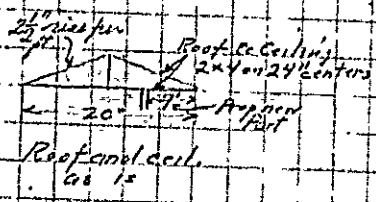 2 1/2" rise per
Roof & Ceiling
2x4 on 24" centers
20"
Prop new
Roof and ceil.
as is